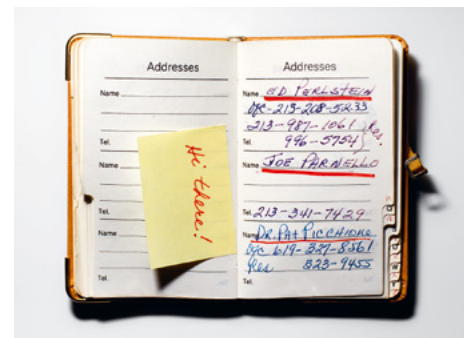 Addresses
Name
Tel.
Name
Tel.
Name
Tel.
Hi there!
Addresses
Name ED PERLSTEIN
Ofc-213-208-5233
213-987-1061 Res.
Tel. 996-5754
Name JOE PARNELLO
Tel. 213-341-7429
Name DR. PAT PICCHIONE
Ofc 619-327-8561
Res 323-9455
Tel.